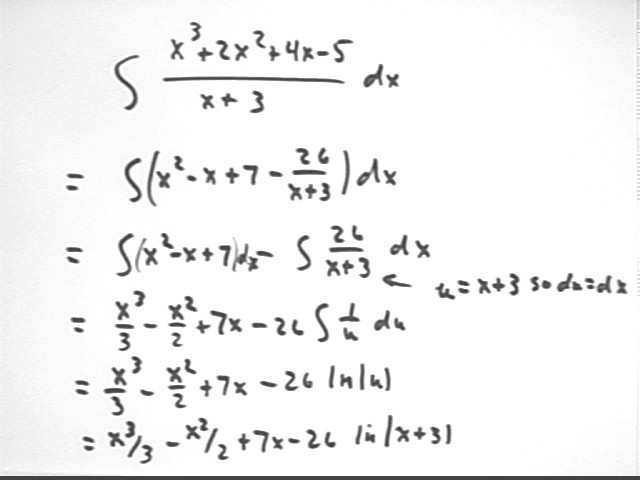 ∫ (x³+2x²+4x-5)/(x+3) dx
= ∫(x²-x+7-26/(x+3))dx
= ∫(x²-x+7)dx - ∫ 26/(x+3) dx ← u=x+3 so du=dx
= x³/3 - x²/2 +7x-26 ∫ 1/u du
= x³/3 - x²/2 +7x-26 ln|u|
= x³/3 - x²/2 +7x-26 ln|x+3|